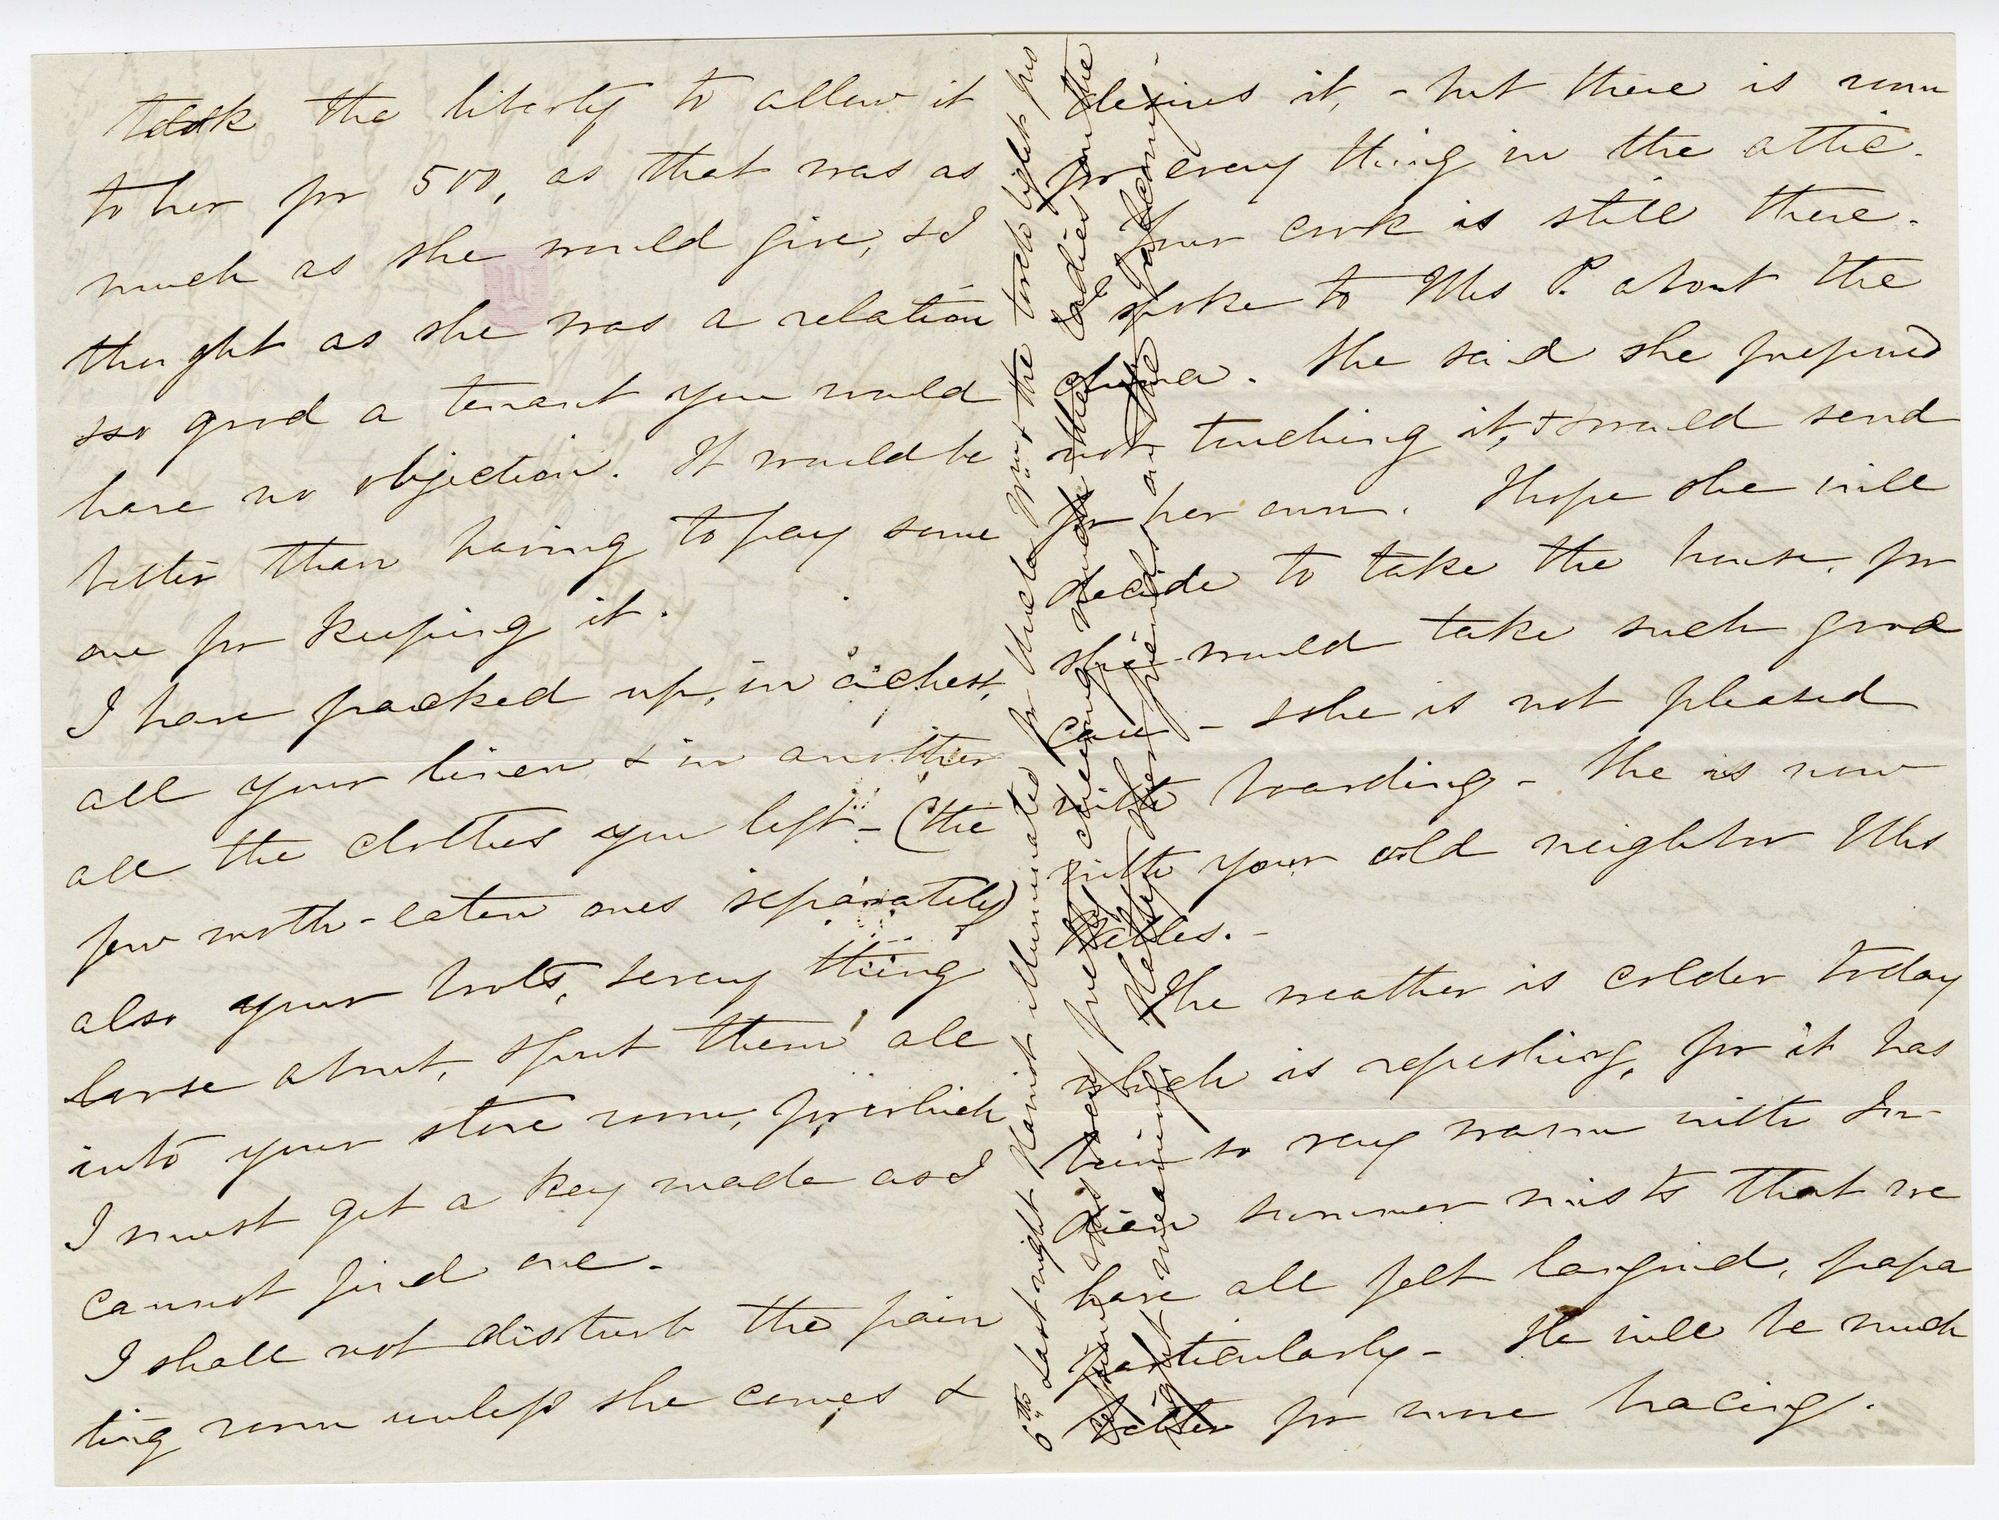 took the liberty to allow it
to her for 500, as that was as
much as she would give, & I
thought as she was a relation
& so good a tenant you would
have no objection. It would be
better than having to pay some
one for keeping it.
I have packed up, in a chest,
all your linen & in another
all the clothes you left - (the
few moth-eaten ones separately)
also your boots, & every thing
loose about, & put them all
into your store room, for which
I must get a key made as I
cannot find one.
I shall not disturb the pain
ting room unless she comes &
desires it, - but there is room
for every thing in the attic.
Your cook is still there.
I spoke to Mrs P. about the
china. She said she prefered
not touching it, & would send
for her own. I hope she will
decide to take the house, for
she would take such good
care - & she is not pleased
with boarding - She is now
with your old neighbor Mrs
Belles. -
The weather is colder today
which is refreshing, for it has
been so very warm with In-
dian summer mists that we
have all felt languid, papa
particularly - He will be much
better for more bracing.
6th Last night Hamot illuminated for Uncle Wm & the torch light pro
cession was very pretty cheering under the Ladies on the
right meaning Hetty. Her friends are the